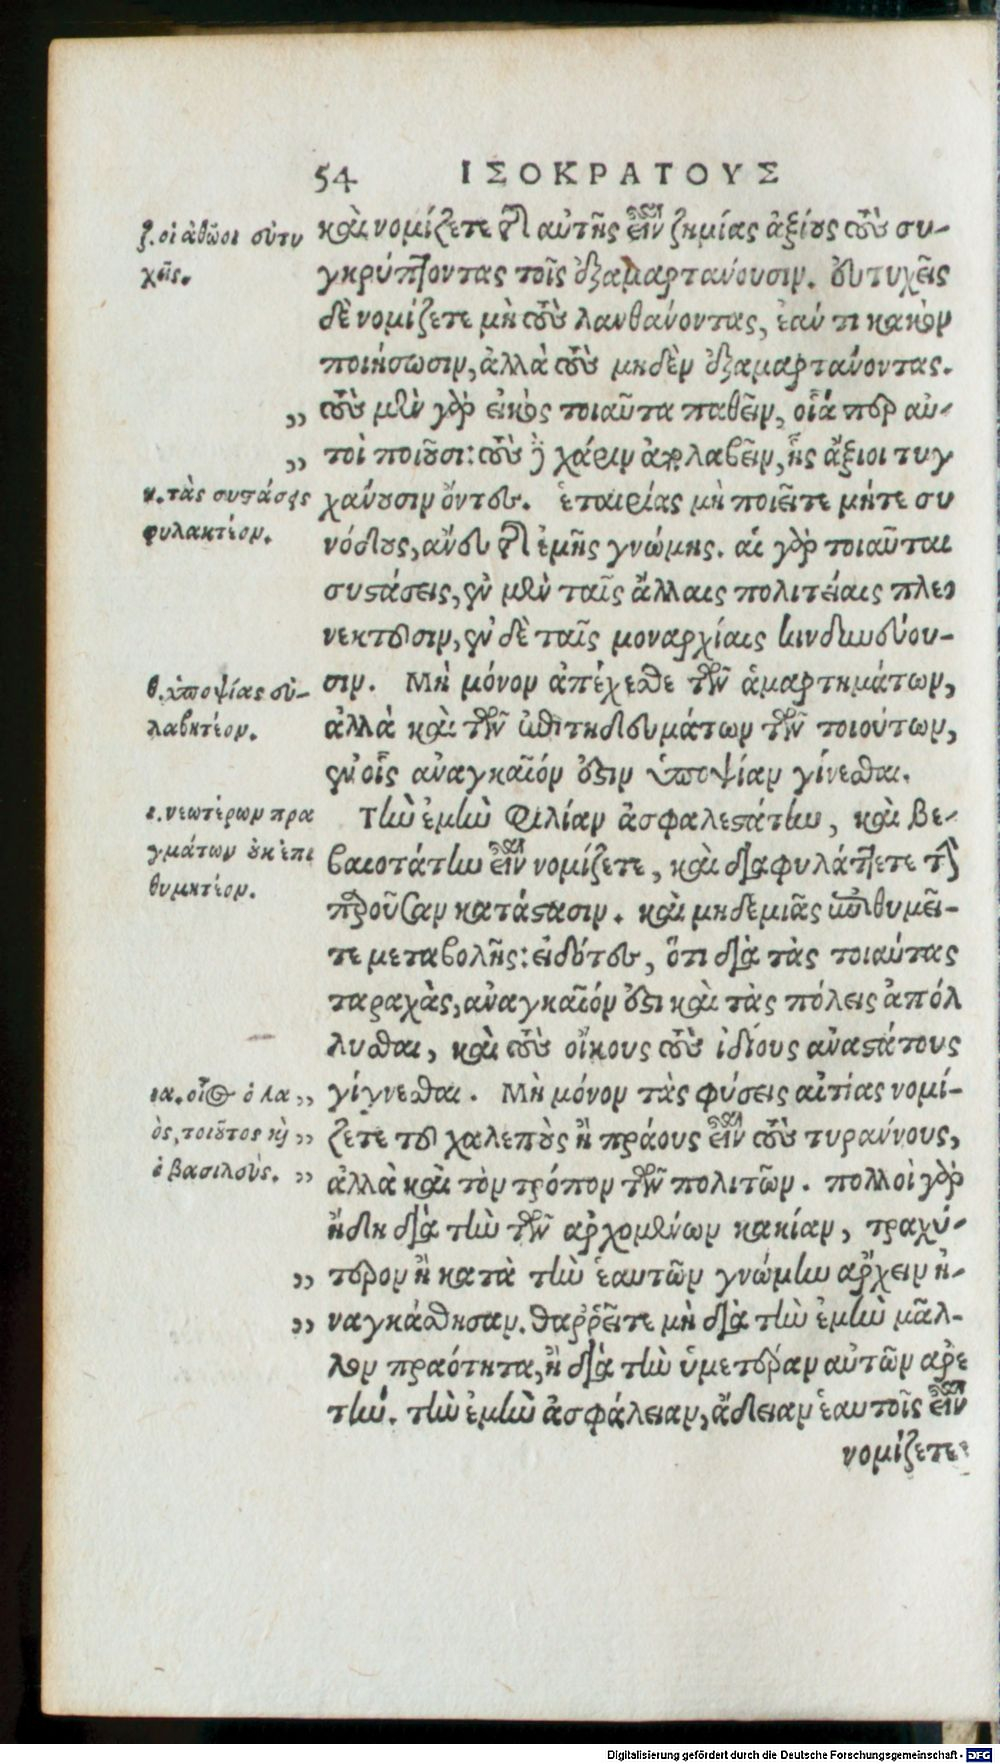 54 ΙΣΟΚΡΑΤΟΥΣ
ζ. οἱ ἀθῶοι εὐτυ
χεῖς.
καὶ νομίζετε τῆς αὐτῆς εἶναι ζημίας ἀξίους τοὺς συ-
γκρύπτοντας τοῖς ἐξαμαρτάνουσιν. εὐτυχεῖς
δὲ νομίζετε μὴ τοὺς λανθάνοντας, ἐάν τι κακὸν
ποιήσωσιν, ἀλλὰ τοὺς μηδὲν ἐξαμαρτάνοντας.
„ τοὺς μὲν γὰρ εἰκὸς τοιαῦτα παθεῖν, οἷά περ αὐ-
„ τοὶ ποιοῦσι: τοὺς δὲ χάριν ἀπολαβεῖν, ἧς ἄξιοι τυγ
η. τὰς συστάσεις
φυλακτέον.
χάνουσιν ὄντες. ἑταιρίας μὴ ποιεῖτε μήτε συ
νόδους, ἄνευ τῆς ἐμῆς γνώμης. αἱ γὰρ τοιαῦται
συστάσεις, ἐν μὲν ταῖς ἄλλαις πολιτείαις πλεο
νεκτοῦσιν, ἐν δὲ ταῖς μοναρχίαις κινδυνεύου-
θ. ὑποψίας εὐ-
λαβητέον.
σιν. Μὴ μόνον ἀπέχεσθε τῶν ἁμαρτημάτων,
ἀλλὰ καὶ τῶν ἐπιτηδευμάτων τῶν τοιούτων,
ἐν οἷς ἀναγκαῖόν ἐστιν ὑποψίαν γίνεσθαι.
ι. νεωτέρων πρα
γμάτων οὐκ ἐπι
θυμητέον.
Τὴν ἐμὴν φιλίαν ἀσφαλεστάτην, καὶ βε-
βαιοτάτην εἶναι νομίζετε, καὶ διαφυλάττετε τὴν
παροῦσαν κατάστασιν. καὶ μηδεμιᾶς ἐπιθυμεῖ-
τε μεταβολῆς: εἰδότες, ὅτι διὰ τὰς τοιαύτας
ταραχὰς, ἀναγκαῖόν ἐστι καὶ τὰς πόλεις ἀπόλ
λυσθαι, καὶ τοὺς οἴκους τοὺς ἰδίους ἀναστάτους
ια. οἷος ὁ λα „
ὸς, τοιοῦτος καὶ „
ὁ βασιλεύς. „
γίγνεσθαι. Μὴ μόνον τὰς φύσεις αἰτίας νομί-
ζετε τοῦ χαλεποὺς ἢ πράους εἶναι τοὺς τυράννους,
ἀλλὰ καὶ τὸν τρόπον τῶν πολιτῶν. πολλοὶ γὰρ
ἤδη διὰ τὴν τῶν ἀρχομένων κακίαν, τραχύ-
„ τερον ἢ κατὰ τὴν ἑαυτῶν γνώμην ἄρχειν ἠ-
„ ναγκάσθησαν. θαῤῥεῖτε μὴ διὰ τὴν ἐμὴν μᾶλ-
λον πραότητα, ἢ διὰ τὴν ὑμετέραν αὐτῶν ἀρε
τήν. τὴν ἐμὴν ἀσφάλειαν, ἄδειαν ἑαυτοῖς εἶναι
νομίζετε
Digitalisierung gefördert durch die Deutsche Forschungsgemeinschaft - DFG